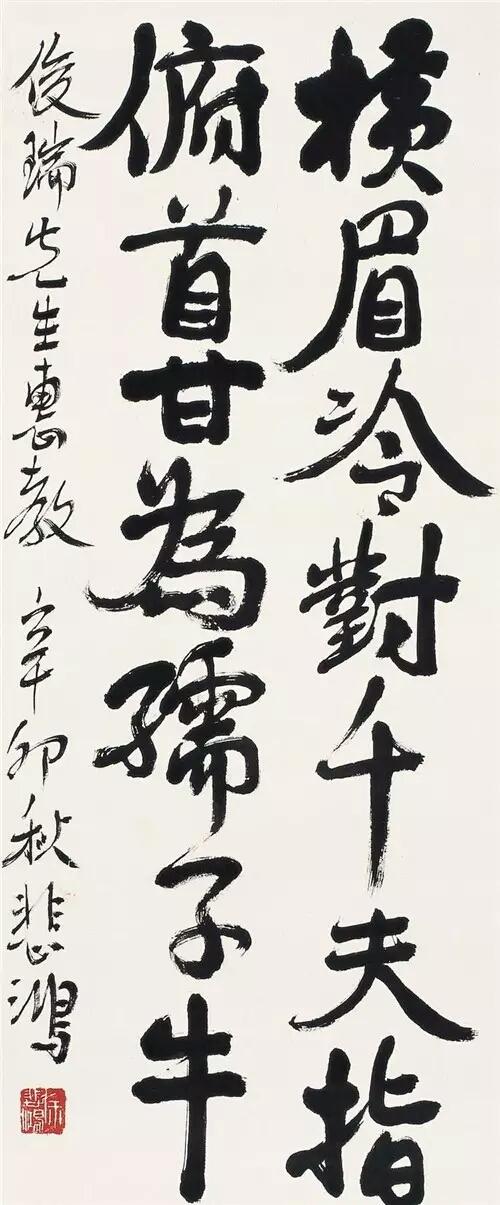 橫眉冷對千夫指
俯首甘為孺子牛
俊瑞先生惠教 辛卯秋 悲鴻